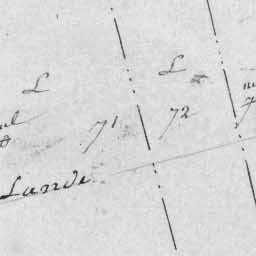 L
L
71
72
Lande